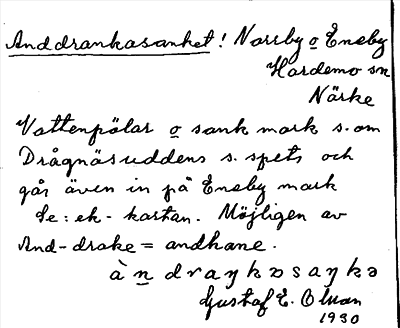 Anddrankasanket! Norrby o Eneby
Hardemo sn
Närke
Vattenpölar o sank mark s. om
Drågnäsuddens s. spets och
går även in på Eneby mark
Se: ek-kartan. Möjligen av
And-drake = andhane.
àn draŋkəsaŋkə
Gustaf E. Olsson
1930